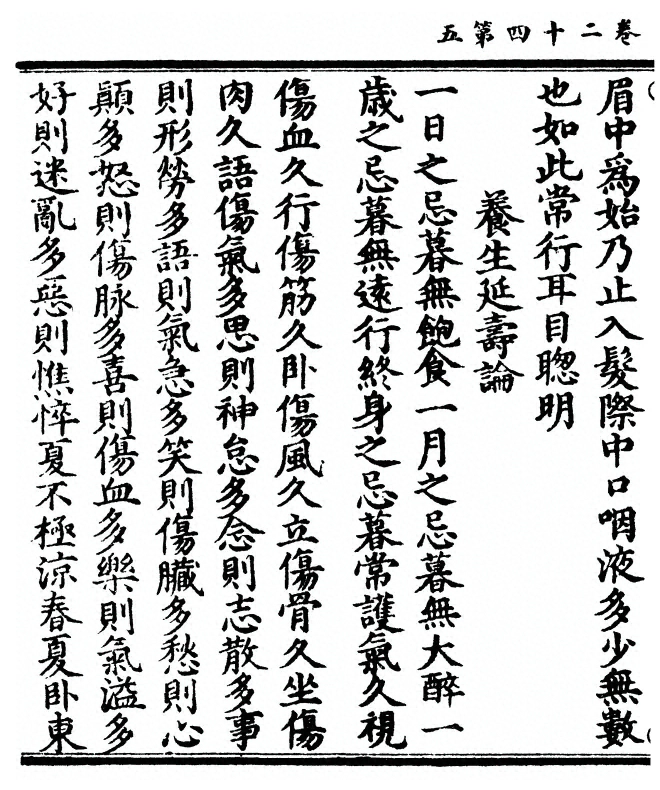 卷二十四第五
眉中爲始乃止入髮際中口咽液多少無數
也如此常行耳目聰明
養生延壽論
一日之忌暮無飽食一月之忌暮無大醉一
歲之忌暮無遠行終身之忌暮常護氣久視
傷血久行傷筋久卧傷風久立傷骨久坐傷
肉久語傷氣多思則神怠多念則志散多事
則形勞多語則氣急多笑則傷臟多愁則心
顚多怒則傷脉多喜則傷血多樂則氣溢多
好則迷亂多惡則憔悴夏不極凉春夏卧東